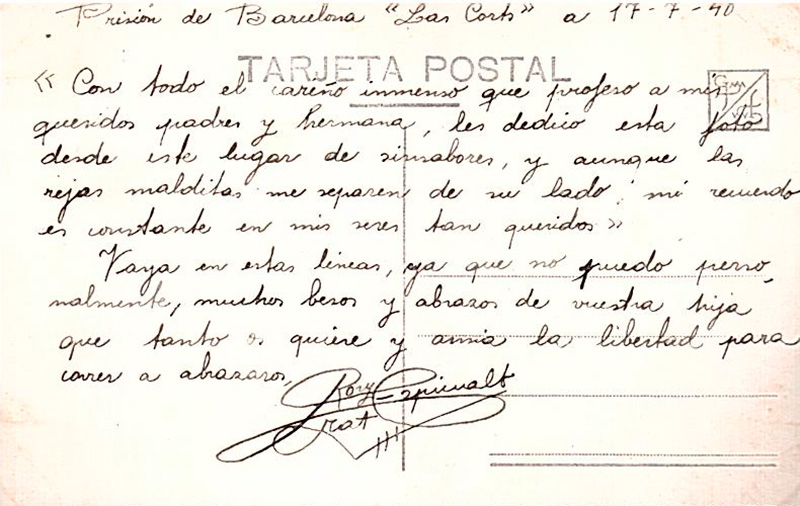 Prisión de Barcelona "Las Corts" a 17-7-40
TARJETA POSTAL
« Con todo el cariño inmenso que profeso a mis
queridos padres y hermana, les dedico esta foto
desde este lugar de sinsabores, y aunque las
rejas malditas me separen de su lado, mi recuerdo
es constante en mis seres tan queridos »
Vaya en estas líneas, ya que no puedo perso
nalmente, muchos besos y abrazos de vuestra hija
que tanto os quiere y ansia la libertad para
correr a abrazaros,